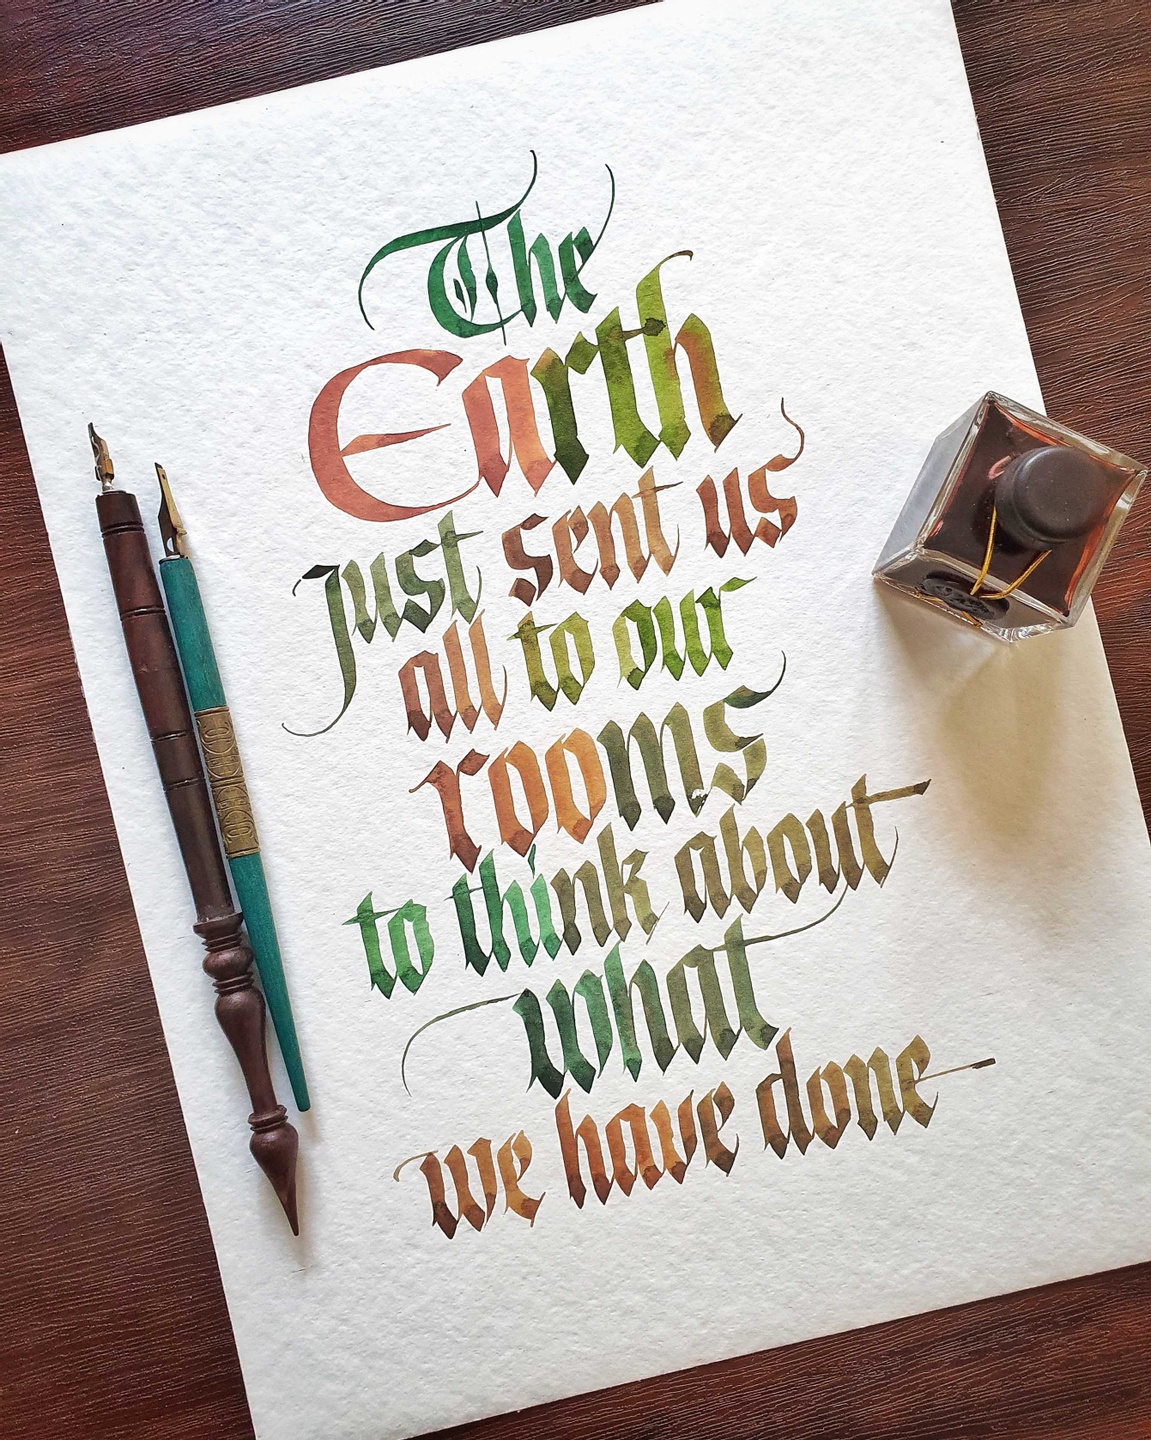 The
Earth
just sent us
all to our
rooms
to think about
what
we have done